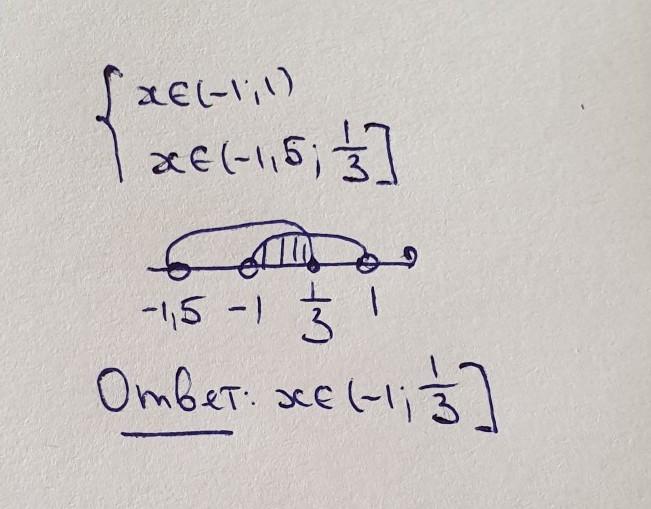 { x∈(-1;1)
x∈(-1,5; 1/3]
-1,5 -1 1/3 1
Ответ: x∈(-1; 1/3]